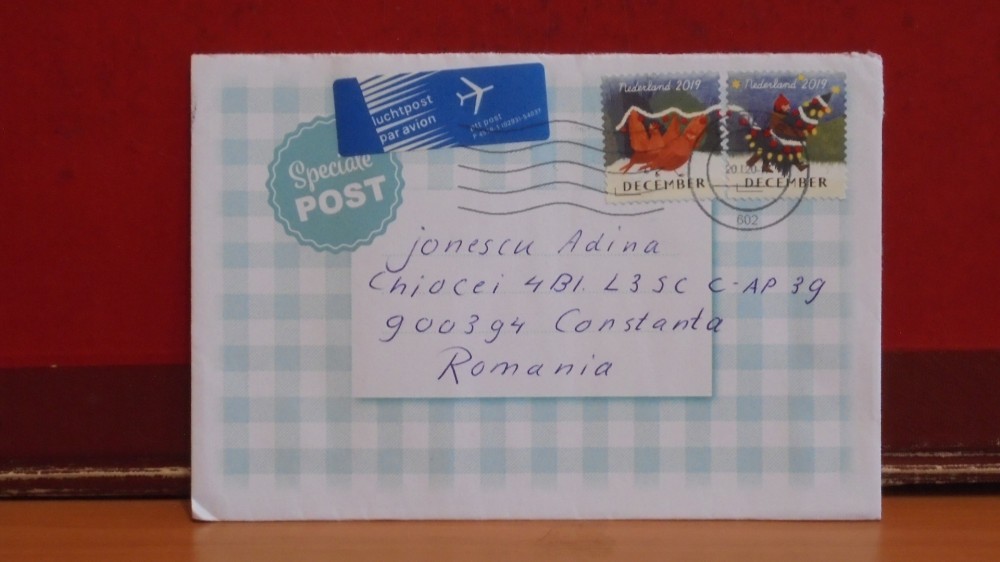 luchtpost
par avion
tnt post
Nederland 2019
Nederland 2019
DECEMBER
DECEMBER
602
Speciale
POST
jonescu Adina
Chiocei 4Bl. L3 SC C-AP 39
900394 Constanta
Romania